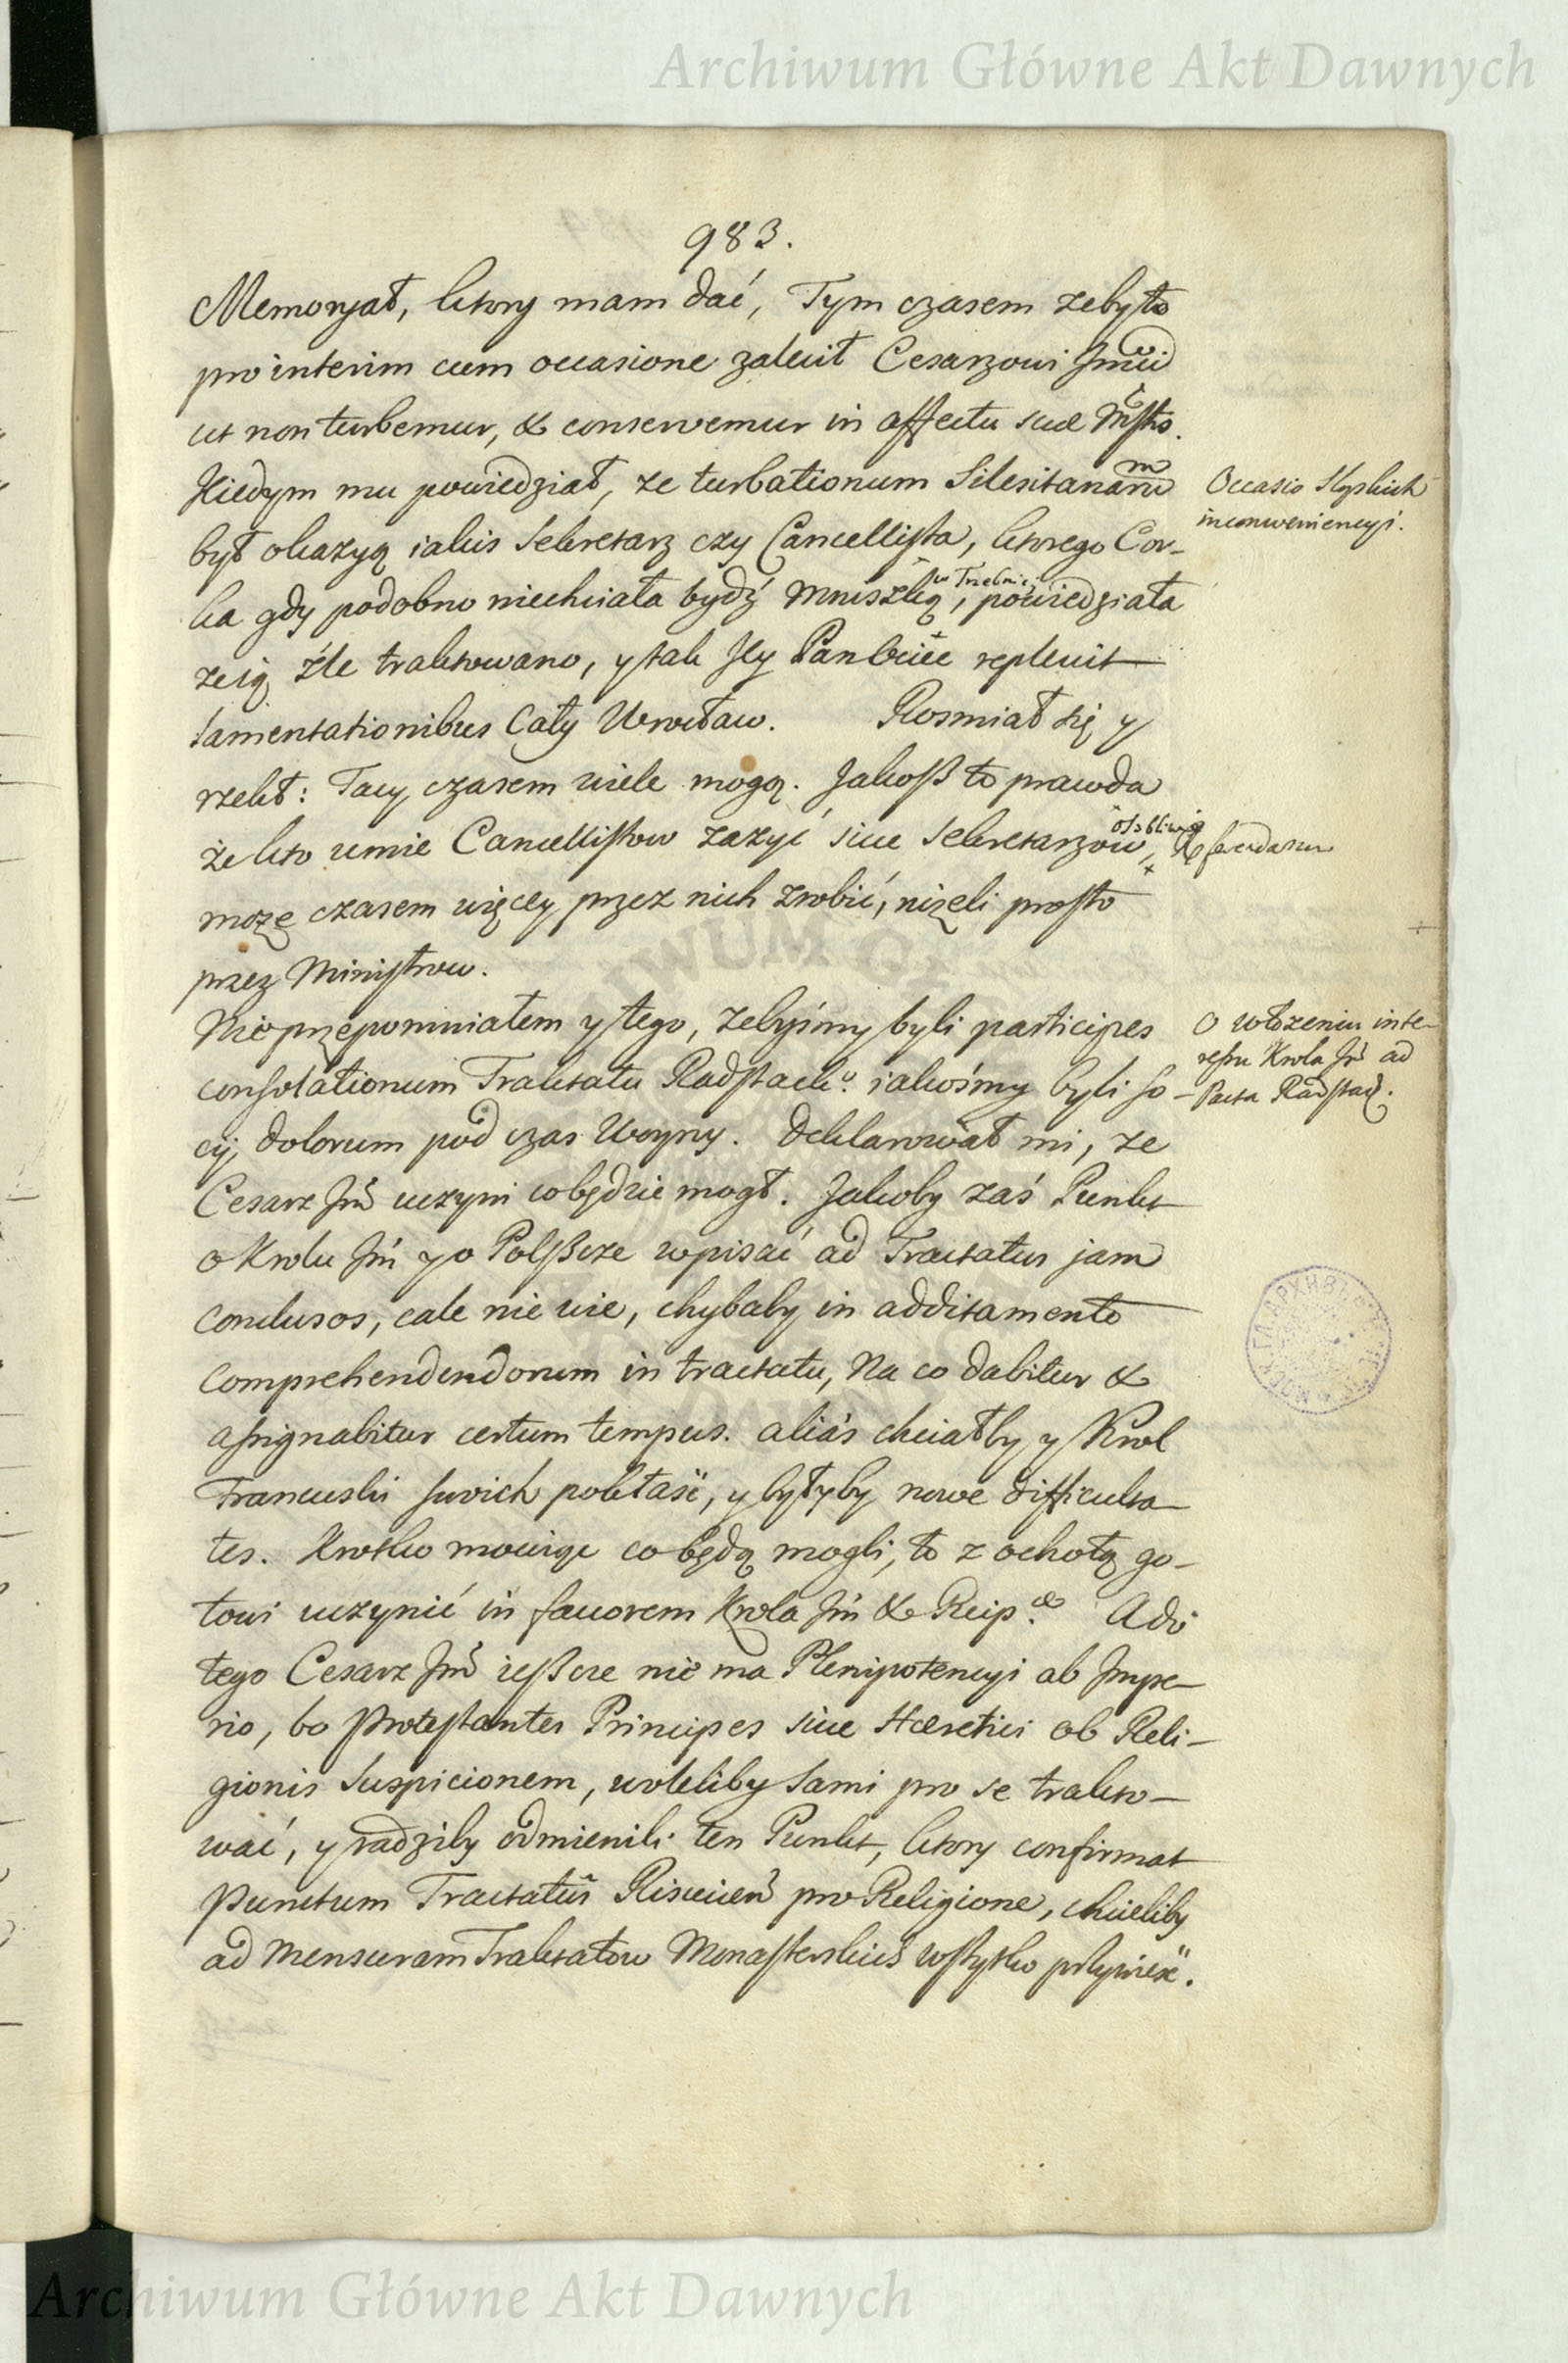 Archiwum Główne Akt Dawnych
983.
Memoryał, ktory mam dać, Tym czasem zeby to
pro interim cum occasione zalecił Cesarzowi Jmci
ut non turbemur, & conservemur in affectu suæ Mtstis.
Kiedym mu powiedział, ze turbationum Silesitanarum
był okazyą iakis Sekretarz czy Cancellista, ktorego Cor-
ka gdy podobno niechciała bydź Mniszką w Trzebnicy, powiedziała
ze ią źle traktowano, y tak Jey replevit
lamentationibus Cały Wrocław. Rosmiał się y
rzekł: Tacy czasem wiele mogą. Jakoß to prawda
że kto umie Cancellistow zazyć siue Sekretarzow, osobliwie Referendarzow
moze czasem więcey przez nich zrobić, niżeli prosto
przez Ministrow.
Nie przepomniałem y tego, zebyśmy byli participes
consolationum Traktatu Radstack. iakośmy byli so-
cij dolorum pod czas Woyny. Deklarował mi, ze
Cesarz Jm uczyni co będzie mogł. Jakoby zaś Punkt
o Krolu Jm y o Polßcze wpisać ad Tractatus jam
conclusos, cale nie wie, chybaby in additamento
comprehendendorum in tractatu, Na co dabitur &
assignabitur certum tempus. aliàs chciałby y Krol
Francuski swoich pokłaść, y byłyby nowe difficulta-
tes. Krotko mowiąc co będą mogli, to z ochotą go-
towi uczynić in favorem Krola Jm & Reip.cæ Ado
tego Cesarz Jm ießcze nie ma Plenipotencyi ab Impe-
rio, bo Protestantes Principes siue Hæretici ob Reli-
gionis Suspicionem, woleliby sami pro se trakto-
wać, y radziby odmienili ten Punkt, ktory confirmat
Punctum Tractatus Risvicen pro Religione, chcieliby
ad mensuram Traktatow Monasterskich wßytko przynieść.
Occasio Sląskich
inconveniencyi.
O włożeniu inte-
resu Krola Jm ad
Pacta Radstad.
Archiwum Główne Akt Dawnych